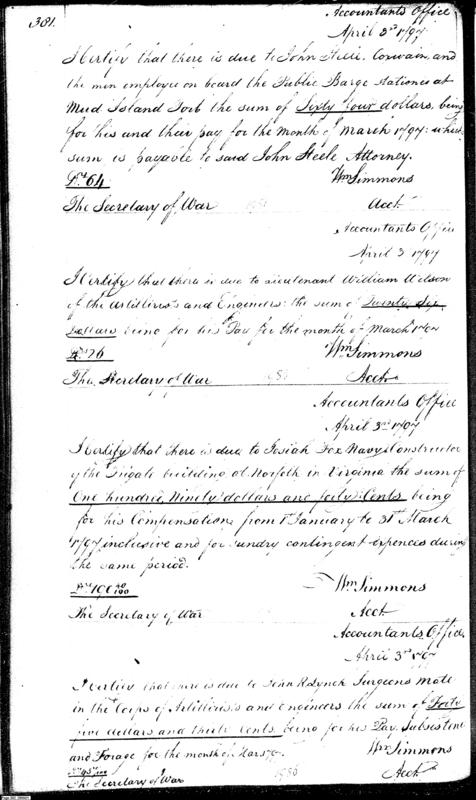 301.
Accountants Office
April 3rd 1797
I Certify that there is due to John Steele, Coxwain, and
the men employed on board the Public Barge stationed at
Mud Island Fort the sum of Sixty four dollars, being
for his and their pay for the month of March 1797: which
sum is payable to said John Steele Attorney.
64
Wm Simmons
The Secretary of War
Acct
Accountants Office
April 3 1797
I Certify that there is due to Lieutenant William Wilson
of the Artillerists and Engineers the sum of Twenty Six
Dollars being for his Pay for the month of March 1797
26
Wm Simmons
The Secretary of War
Acct
Accountants Office
April 3rd 1797
I Certify that there is due to Josiah Fox Navy Constructor
of the Frigate building at Norfolk in Virginia the sum of
One hundred Ninety dollars and forty Cents being
for his Compensation from 1st January to 31st March
1797 inclusive and for sundry contingent expences during
the same period.
190 40/100
Wm Simmons
The Secretary of War
Acct
Accountants Office
April 3rd 1797
I Certify that there is due to John R Lynch Surgeons Mate
in the Corps of Artillerists and Engineers the sum of Forty
five dollars and thirty Cents being for his Pay, Subsistence
and Forage for the month of
Wm Simmons
The Secretary of War
Acct